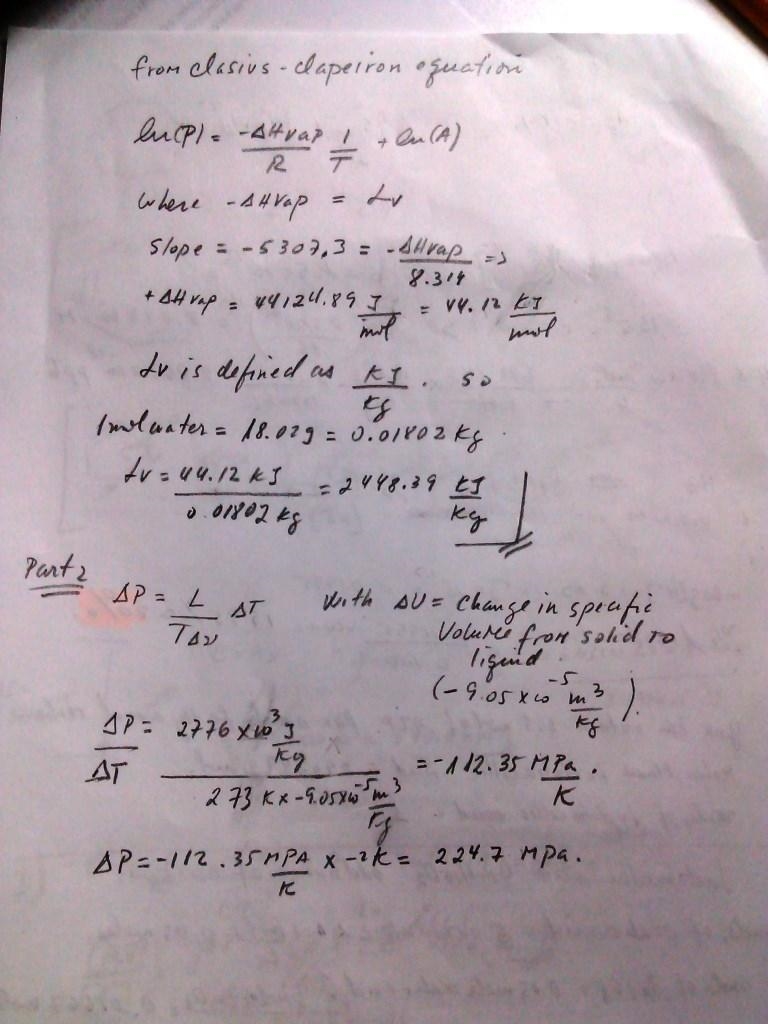 from clasius - clapeiron equation
ln(P) = -ΔHvap/R 1/T + ln(A)
where -ΔHvap = Lv
Slope = -5307,3 = -ΔHvap/8.314 =>
+ΔHvap = 44124.89 J/mol = 44.12 KJ/mol
Lv is defined as KJ/Kg . so
1mol water = 18.02g = 0.01802 Kg .
Lv = 44.12 KJ/0.01802 kg = 2448.39 KJ/Kg
Part 2
ΔP = L/TΔv ΔT with Δv = change in specific
Volume from solid to
liquid .
(-9.05x10^-5 m^3/kg ).
ΔP/ΔT = 2776 x10^3 J/Kg / 273 K x -9.05x10^-5 m^3/Kg = -112.35 MPa/K .
ΔP = -112.35 MPA/K x -2K = 224.7 MPa.